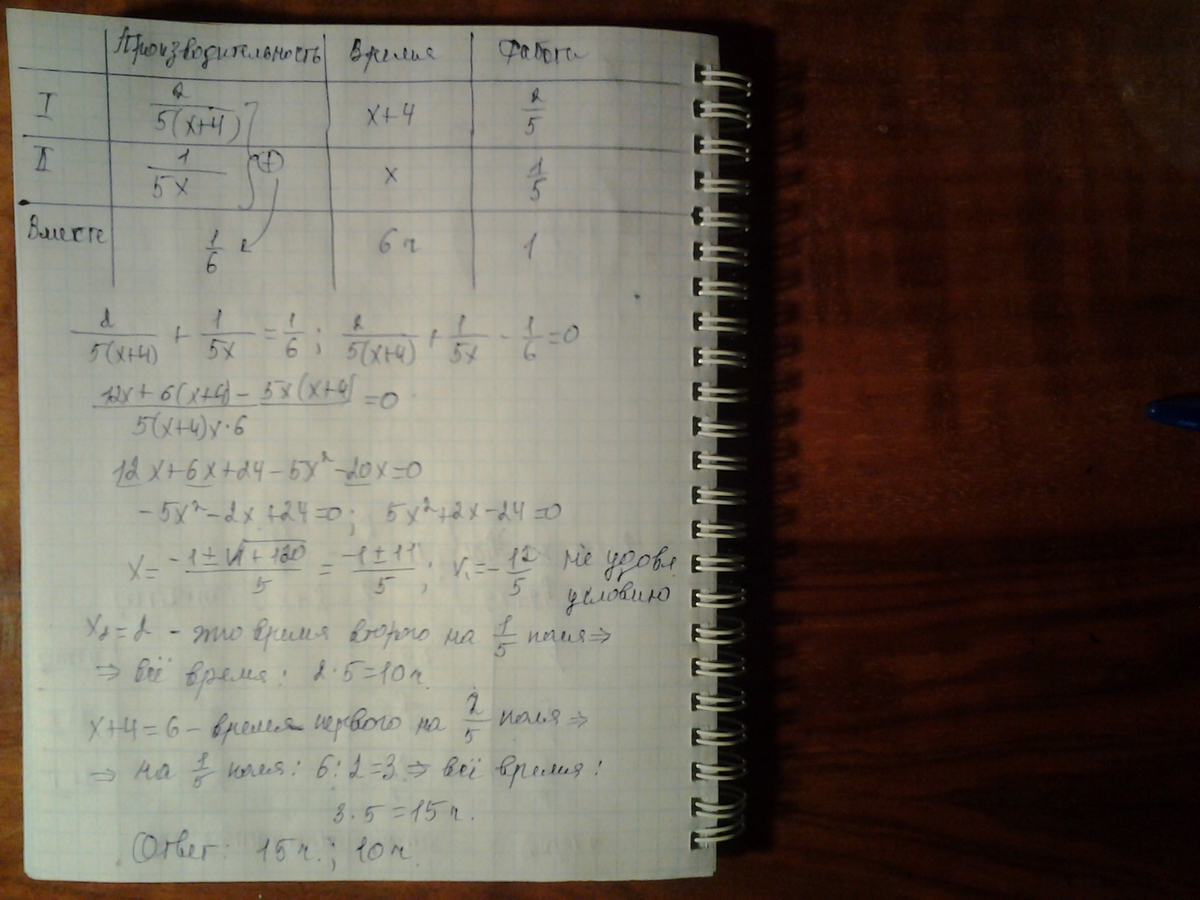 Производительность Время Работа
I 2/5(x+4) x+4 2/5
II 1/5x x 1/5
+
Вместе 1/6 6 ч 1
2/5(x+4) + 1/5x = 1/6 ; 2/5(x+4) + 1/5x - 1/6 = 0
12x + 6(x+4) - 5x(x+4)/5(x+4)x·6 = 0
12x+6x+24-5x²-20x=0
-5x²-2x+24=0; 5x²+2x-24=0
x = -1±√1+120/5 = -1±11/5 ; x₁=-12/5 не удовл
условию
x₂=2 - это время второго на 1/5 поля ⇒
⇒ всё время: 2·5=10ч.
x+4=6 - время первого на 2/5 поля ⇒
⇒ на 1/5 поля: 6:2=3 ⇒ всё время:
3·5=15ч.
Ответ: 15ч.; 10ч.